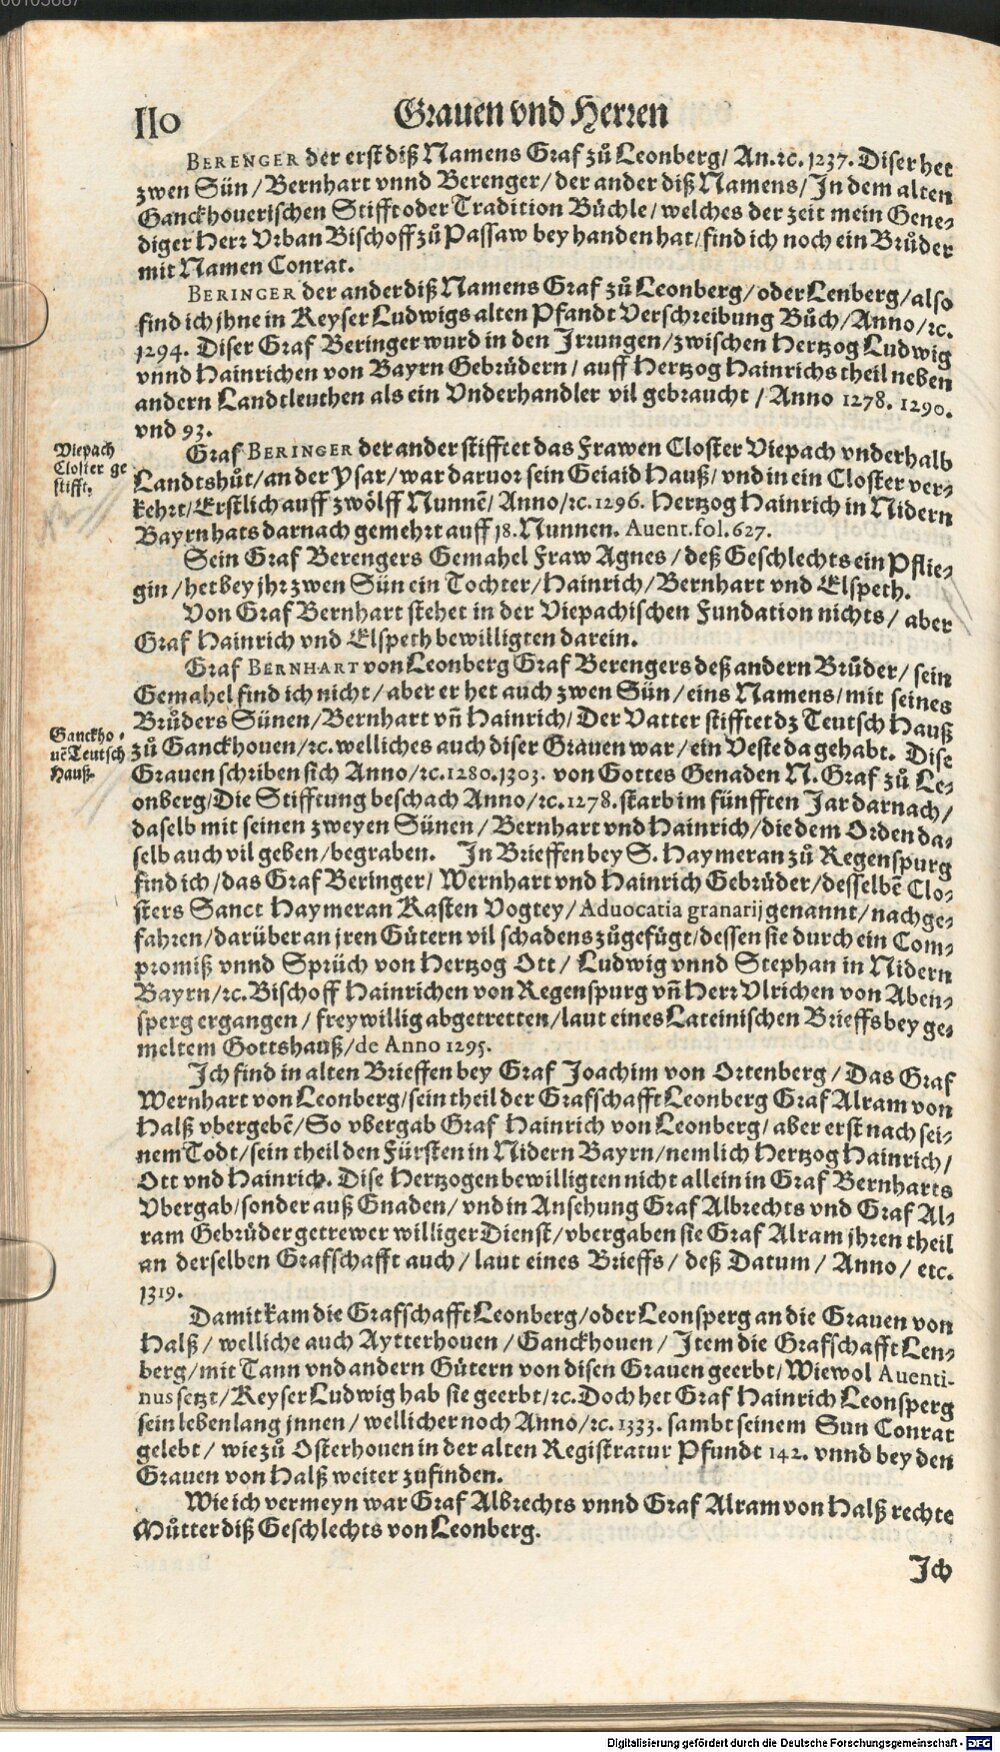 110
Grauen vnd Herren
BERENGER der erst diß Namens Graf zů Leonberg/ An.ꝛc. 1237. Diser het
zwen Sün / Bernhart vnnd Berenger/ der ander diß Namens/ In dem alten
Ganckhouerischen Stifft oder Tradition Büchle/ welches der zeit mein Gene⸗
diger Herr Vrban Bischoff zů Passaw bey handen hat/ find ich noch ein Brůder
mit Namen Conrat.
BERINGER der ander diß Namens Graf zů Leonberg/ oder Lenberg/ also
find ich jhne in Keyser Ludwigs alten Pfandt Verschreibung Bůch/ Anno/ ꝛc.
1294. Diser Graf Beringer wurd in den Irrungen/ zwischen Hertzog Ludwig
vnnd Hainrichen von Bayrn Gebrüdern/ auff Hertzog Hainrichs theil neben
andern Landtleuthen als ein Vnderhandler vil gebraucht / Anno 1278. 1290.
vnd 93.
Viepach
Closter ge
stifft.
Graf BERINGER der ander stifftet das Frawen Closter Viepach vnderhalb
Landtshůt/ an der Ysar/ war daruor sein Geiaid Hauß/ vnd in ein Closter ver⸗
kehrt/ Erstlich auff zwölff Nunnē/ Anno/ ꝛc. 1296. Hertzog Hainrich in Nidern
Bayrn hats darnach gemehrt auff 18. Nunnen. Auent. fol. 627.
Sein Graf Berengers Gemahel Fraw Agnes / deß Geschlechts ein Pflie⸗
gin / het bey jhr zwen Sün ein Tochter/ Hainrich/ Bernhart vnd Elspeth.
Von Graf Bernhart stehet in der Viepachischen Fundation nichts/ aber
Graf Hainrich vnd Elspeth bewilligten darein.
Graf BERNHART von Leonberg Graf Berengers deß andern Brůder/ sein
Gemahel find ich nicht/ aber er het auch zwen Sün / eins Namens/ mit seines
Brůders Sünen/ Bernhart vñ Hainrich/ Der Vatter stifftet dz Teutsch Hauß
Ganckho⸗
uē Teutsch
Hauß.
zů Ganckhouen/ ꝛc. welliches auch diser Grauen war/ ein Veste da gehabt. Dise
Grauen schriben sich Anno/ ꝛc. 1280. 1303. von Gottes Genaden N. Graf zů Le⸗
onberg/ Die Stifftung beschach Anno/ ꝛc. 1278. starb im fünfften Jar darnach/
daselb mit seinen zweyen Sünen/ Bernhart vnd Hainrich/ die dem Orden da⸗
selb auch vil geben/ begraben. In Brieffen bey S. Haymeran zů Regenspurg
find ich/ das Graf Beringer/ Wernhart vnd Hainrich Gebrüder/ desselbē Clo⸗
sters Sanct Haymeran Kasten Vogtey/ Aduocatia granarij genannt/ nachge⸗
fahren/ darüber an jren Gütern vil schadens zůgefügt/ dessen sie durch ein Com⸗
promiß vnnd Sprüch von Hertzog Ott/ Ludwig vnnd Stephan in Nidern
Bayrn/ ꝛc. Bischoff Hainrichen von Regenspurg vñ Herr Vlrichen von Aben⸗
sperg ergangen / freywillig abgetretten/ laut eines Lateinischen Brieffs bey ge⸗
meltem Gottshauß/ de Anno 1295.
Ich find in alten Brieffen bey Graf Joachim von Ortenberg/ Das Graf
Wernhart von Leonberg/ sein theil der Grafschafft Leonberg Graf Alram von
Halß vbergebē/ So vbergab Graf Hainrich von Leonberg/ aber erst nach sei⸗
nem Todt/ sein theil den Fürsten in Nidern Bayrn/ nemlich Hertzog Hainrich/
Ott vnd Hainrich. Dise Hertzogen bewilligten nicht allein in Graf Bernharts
Vbergab/ sonder auß Gnaden/ vnd in Ansehung Graf Albrechts vnd Graf Al⸗
ram Gebrüder getrewer williger Dienst/ vbergaben sie Graf Alram jhren theil
an derselben Grafschafft auch/ laut eines Brieffs / deß Datum / Anno / etc.
1319.
Damit kam die Grafschafft Leonberg/ oder Leonsperg an die Grauen von
Halß / welliche auch Aytterhouen / Ganckhouen / Item die Grafschafft Len⸗
berg/ mit Tann vnd andern Gütern von disen Grauen geerbt/ Wiewol Auenti-
nus setzt/ Keyser Ludwig hab sie geerbt/ ꝛc. Doch het Graf Hainrich Leonsperg
sein lebenlang jnnen / wellicher noch Anno/ ꝛc. 1333. sambt seinem Sun Conrat
gelebt/ wie zů Osterhouen in der alten Registratur Pfundt 142. vnnd bey den
Grauen von Halß weiter zufinden.
Wie ich vermeyn war Graf Albrechts vnnd Graf Alram von Halß rechte
Můtter diß Geschlechts von Leonberg.
Ich
Digitalisierung gefördert durch die Deutsche Forschungsgemeinschaft - DFG